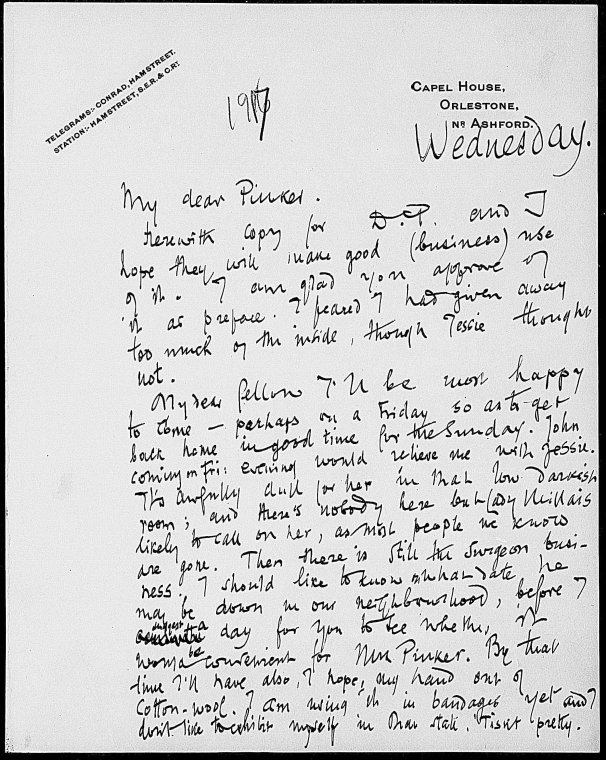 TELEGRAMS:- CONRAD, HAMSTREET.
STATION:- HAMSTREET, S.E.R. & C.RY.
1917
CAPEL HOUSE,
ORLESTONE,
NR ASHFORD.
Wednesday.
My dear Pinker.
Herewith copy for D.P. and I
hope they will make good (business) use
of it. I am glad you approve of
it as preface. I feared I had given away
too much of the inside, though Jessie thought
not.
My dear fellow I'll be most happy
to come – perhaps on a Friday so as to get
back home in good time for the Sunday. John
coming on Fri: evening would relieve me with Jessie.
It's awfully dull for her in that low darkish
room; and there's nobody here but Lady Millais
likely to call on her, as most people we know
are gone. Then there is still the surgeon busi-
ness. I should like to know what date he
may be down in our neighbourhood, before I
suggest a day for you to see whether it
would be convenient for Mrs Pinker. By that
time I'll have also, I hope, my hand out of
cotton-wool. I am using it in bandages yet and I
don't like to exhibit myself in that state. 'Tisnt pretty.